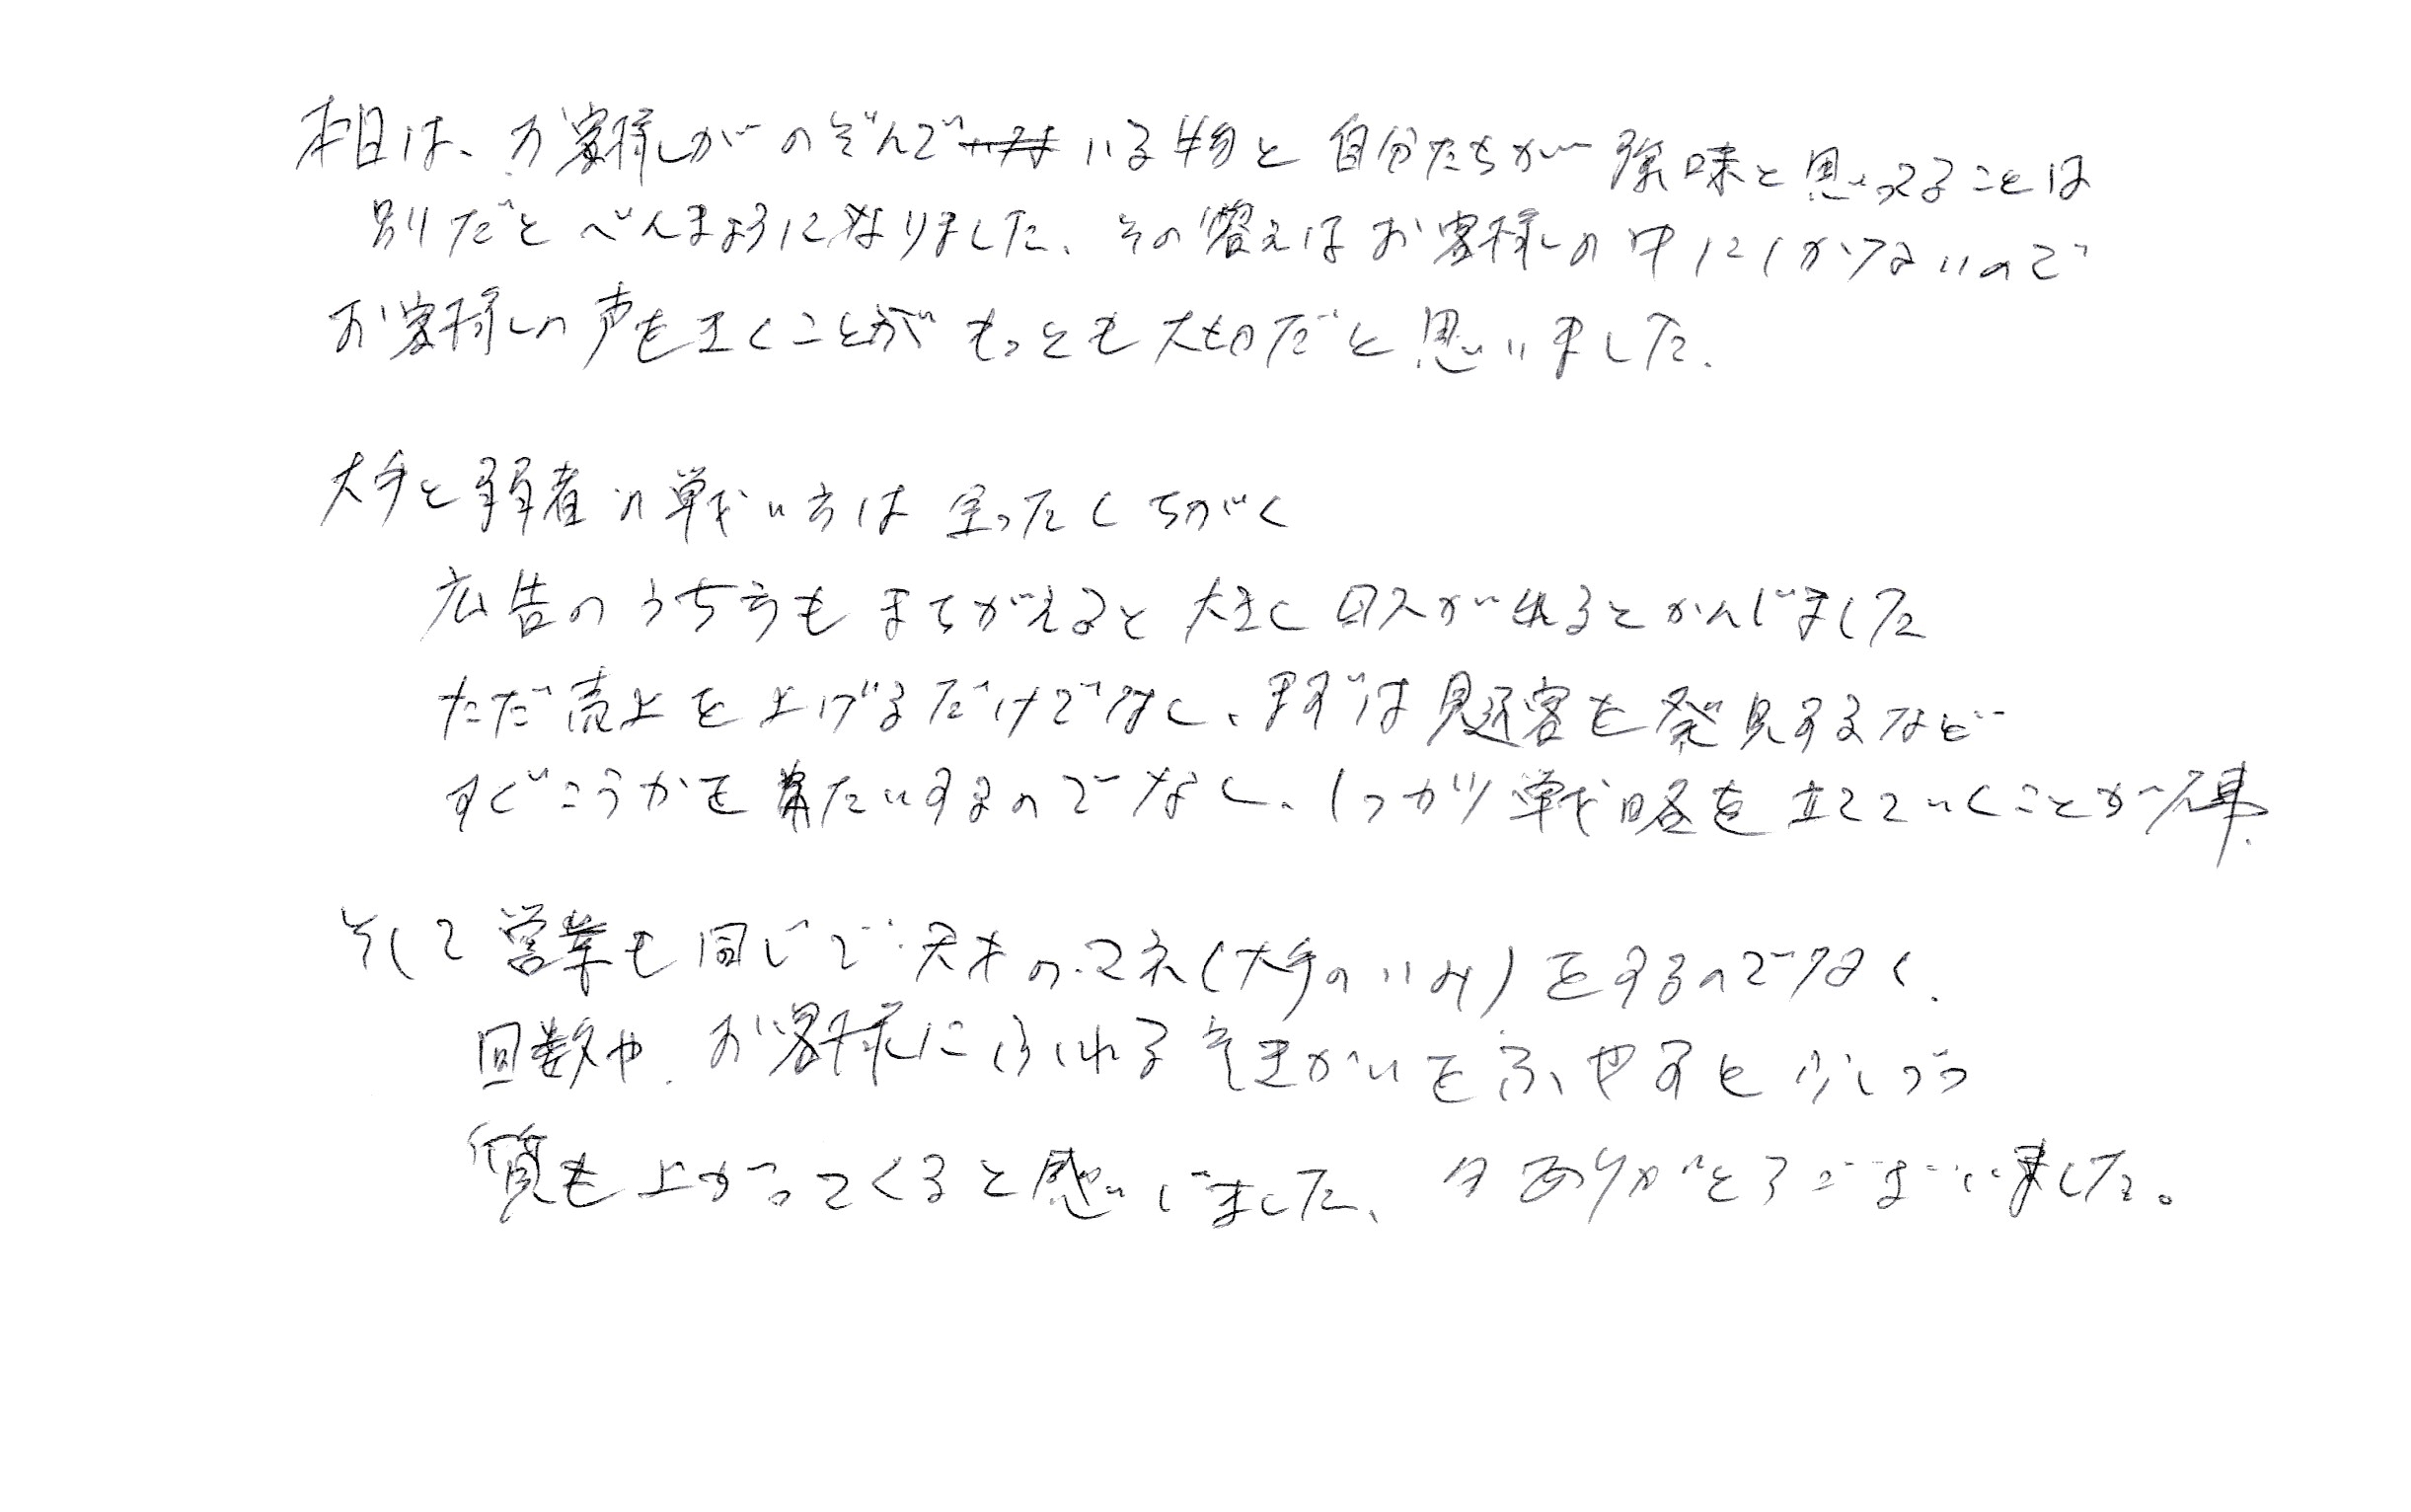 本日は、お客様がのぞんでいる物と自分たちが強味と思ってることは
別だとべんきょうになりました、その答えはお客様の中にしかないので
お客様の声をきくことがもっとも大切だと思いました。
大手と弱者の戦い方は全ったくちがく
広告のうち方もまちがえると大きくロスが出るとかんじました
ただ売上を上げるだけでなく、まずは見込客を発見するなど
すぐこうかを期たいするのでなく、しっかり戦略を立てていくことが大事。
そして営業も同じで天才のマネ(大手のいみ)をするのでなく、
回数や、お客様にふれるきかいをふやすと少しづつ
質も上がってくると感じました、ありがとうございました。